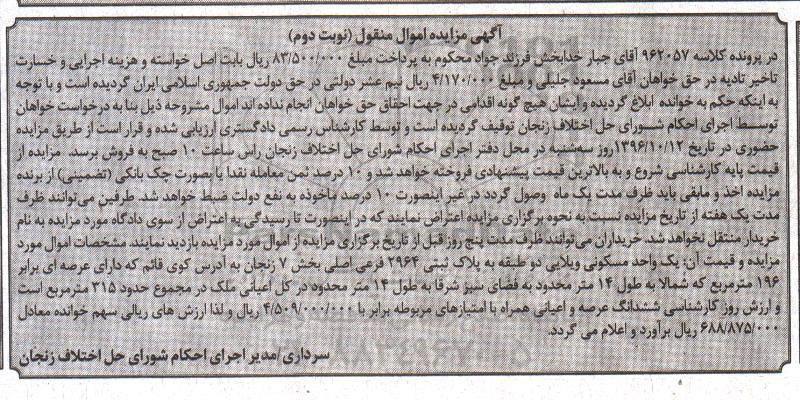 آگهی مزایده اموال منقول (نوبت دوم)
در پرونده کلاسه ۹۶۲۰۵۷ آقای جبار خدابخش فرزند جواد محکوم به پرداخت مبلغ ۸۳/۵۰۰/۰۰۰ ریال بابت اصل خواسته و هزینه اجرایی و خسارت
تاخیر تادیه در حق خواهان آقای مسعود جلیلی و مبلغ ۴/۱۷۰/۰۰۰ ریال نیم عشر دولتی در حق دولت جمهوری اسلامی ایران گردیده است و با توجه
به اینکه حکم به خوانده ابلاغ گردیده و ایشان هیچ گونه اقدامی در جهت احقاق حق خواهان انجام نداده اند اموال مشروحه ذیل بنا به درخواست خواهان
توسط اجرای احکام شورای حل اختلاف زنجان توقیف گردیده است و توسط کارشناس رسمی دادگستری ارزیابی شده و قرار است از طریق مزایده
حضوری در تاریخ ۱۳۹۶/۱۰/۱۲روز سه‌شنبه در محل دفتر اجرای احکام شورای حل اختلاف زنجان راس ساعت ۱۰ صبح به فروش برسد. مزایده از
قیمت پایه کارشناسی شروع و به بالاترین قیمت پیشنهادی فروخته خواهد شد و ۱۰ درصد ثمن معامله نقدا یا بصورت چک بانکی (تضمینی) از برنده
مزایده اخذ و مابقی باید ظرف مدت یک ماه وصول گردد در غیر اینصورت ۱۰ درصد ماخوذه به نفع دولت ضبط خواهد شد. طرفین می‌توانند ظرف
مدت یک هفته از تاریخ مزایده نسبت به نحوه برگزاری مزایده اعتراض نمایند که در اینصورت تا رسیدگی به اعتراض از سوی دادگاه مورد مزایده به نام
خریدار منتقل نخواهد شد. خریداران می‌توانند ظرف مدت پنج روز قبل از تاریخ برگزاری مزایده از اموال مورد مزایده بازدید نمایند. مشخصات اموال مورد
مزایده و قیمت آن: یک واحد مسکونی ویلایی دو طبقه به پلاک ثبتی ۲۹۶۴ فرعی اصلی بخش ۷ زنجان به آدرس کوی قائم که دارای عرصه ای برابر
۱۹۶ مترمربع که شمالا به طول ۱۴ متر محدود به فضای سبز شرقا به طول ۱۴ متر محدود در کل اعیانی ملک در مجموع حدود ۳۱۵ مترمربع است
و ارزش روز کارشناسی ششدانگ عرصه و اعیانی همراه با امتیازهای مربوطه برابر با ۴/۵۰۹/۰۰۰/۰۰۰ ریال و لذا ارزش های ریالی سهم خوانده معادل
۶۸۸/۸۷۵/۰۰۰ ریال برآورد و اعلام می گردد.
سرداری/مدیر اجرای احکام شورای حل اختلاف زنجان